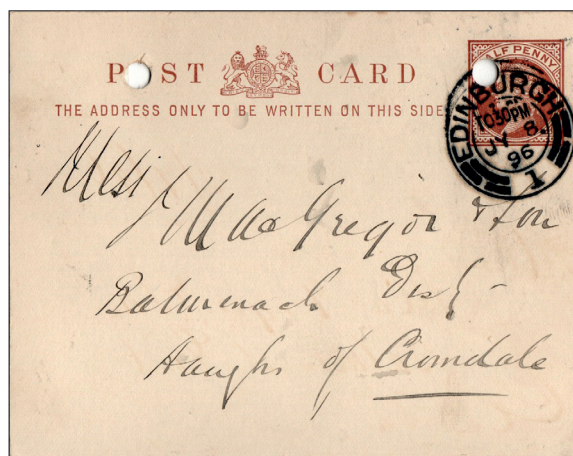 POST CARD
HALF PENNY
THE ADDRESS ONLY TO BE WRITTEN ON THIS SIDE
EDINBURGH
1030PM
JY 8
96
1
Mess
J MacGregor & Son
Balmenach Disty
Haughs of Cromdale